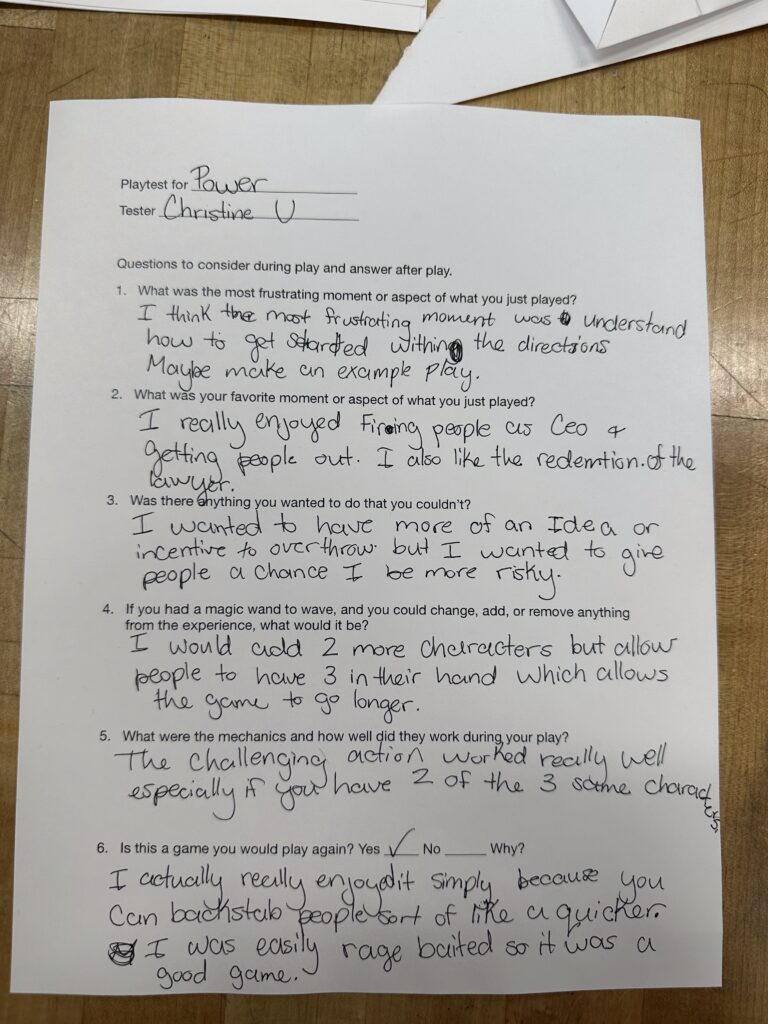 Playtest for Power
Tester Christine U
Questions to consider during play and answer after play.
1. What was the most frustrating moment or aspect of what you just played?
I think the most frustrating moment was understand
how to get started within the directions
Maybe make an example play.
2. What was your favorite moment or aspect of what you just played?
I really enjoyed Firing people as Ceo &
getting people out. I also like the redemtion of the
lawyer.
3. Was there anything you wanted to do that you couldn't?
I wanted to have more of an Idea or
incentive to overthrow. but I wanted to give
people a chance I be more risky.
4. If you had a magic wand to wave, and you could change, add, or remove anything
from the experience, what would it be?
I would add 2 more characters but allow
people to have 3 in their hand which allows
the game to go longer.
5. What were the mechanics and how well did they work during your play?
The challenging action worked really well
especially if you have 2 of the 3 same characters.
6. Is this a game you would play again? Yes ✓ No Why?
I actually really enjoyed it simply because you
can backstab people sort of like a quicker.
I was easily rage baited so it was a
good game.